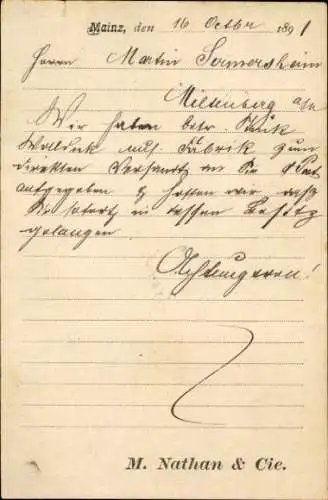 Mainz, den 16 Octbr 1891
Herrn Martin
Miltenberg a/m
Wir haben betr.
auf. Fabrik zum
direkten Versandt an Sie p Post
aufgegeben & hoffen wir dass
Sie sofort in dessen Besitz
gelangen
Achtungsvoll
M. Nathan & Cie.